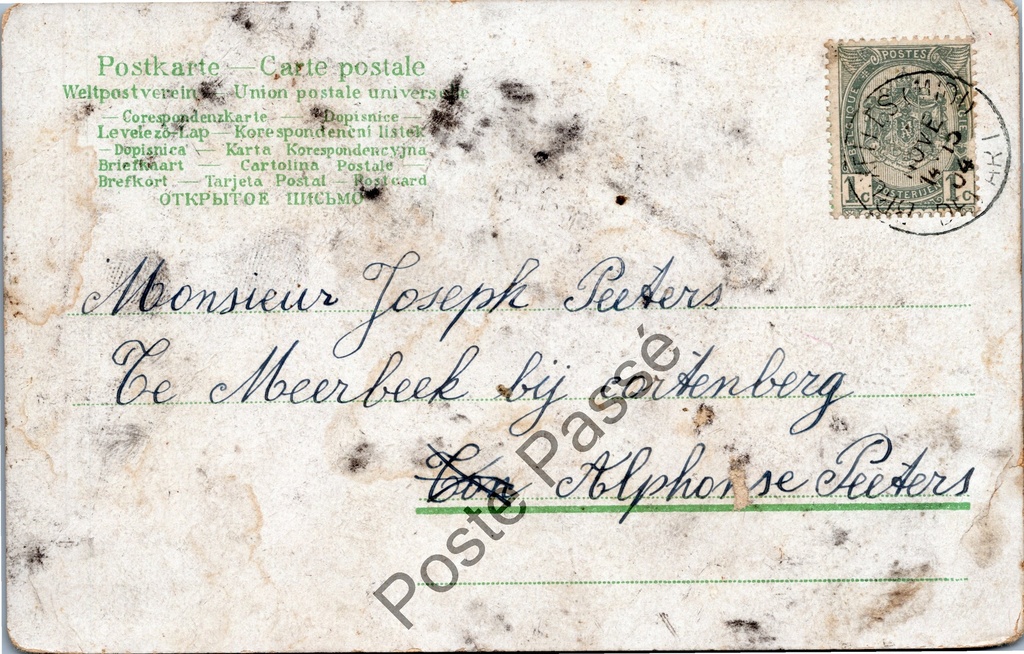 Postkarte — Carte postale
Weltpostverein — Union postale universelle
— Corespondenzkarte — Dopisnice —
Levelező-Lap — Korespondenční lístek
— Dopisnica — Karta Korespondencyjna
Briefkaart — Cartolina Postale —
Brefkort — Tarjeta Postal — Postcard
ОТКРЫТОЕ ПИСЬМО
POSTES
BELGIQUE
1
POSTERIJEN
14 13
04
Monsieur Joseph Peeters
Te Meerbeek bij cortenberg
Alphonse Peeters
Poste Passé